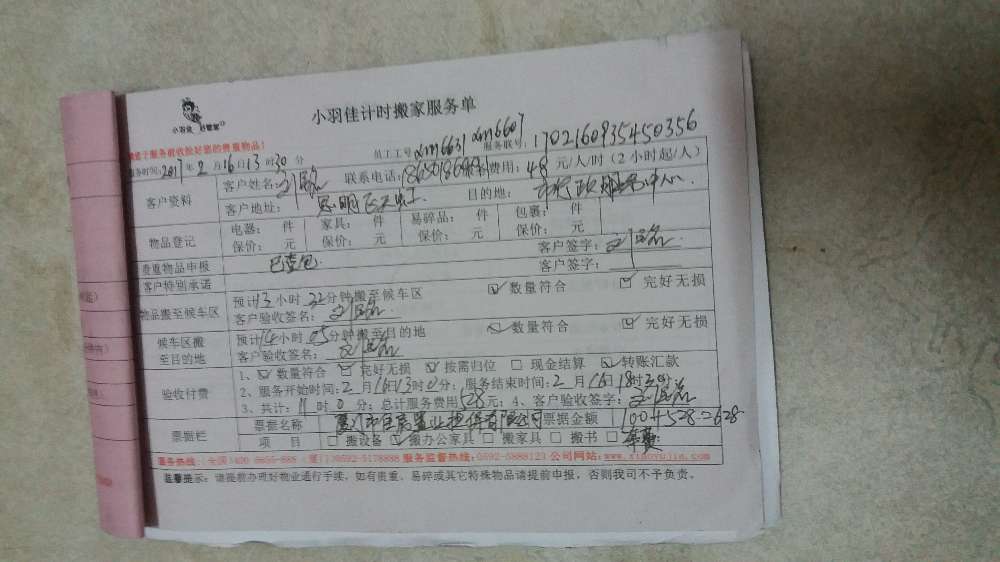 小羽佳 好管家
小羽佳计时搬家服务单
请于服务前收捡好您的贵重物品!
员工工号 xm6631 xm6607 服务联号: 1702160935450356
服务时间: 2017年2月16日13时30分
客户资料 客户姓名: 联系电话: 费用: 48元/人/时(2小时起/人)
客户地址: 思明区 目的地: 中心
物品登记 电器: 件 家具: 件 易碎品: 件 包裹: 件
保价: 元 保价: 元 保价: 元 保价: 元
客户签字:
贵重物品申报 已查包 客户签字:
客户特别承诺
物品搬至候车区 预计13小时32分钟搬至候车区 数量符合 完好无损
客户验收签名:
候车区搬至目的地 预计14小时05分钟搬至目的地 数量符合 完好无损
客户验收签名:
验收付费 1、数量符合 完好无损 按需归位 现金结算 转账汇款
2、服务开始时间: 2月16日13时0分; 服务结束时间: 2月16日18时30分
3、共计: 11时0分; 总计服务费用528元; 4、客户验收签字:
票据栏 票据名称 厦门市 置业 有限公司 票据金额 100+528=628
项目 搬设备 搬办公家具 搬家具 搬书 车费
服务热线: 全国)400-6655-888 (厦门)0592-5178888 服务监督热线: 0592-5888123 公司网站: www.xiaoyujia.com
温馨提示: 请提前办理好物业通行手续, 如有贵重、易碎或其它特殊物品请提前申报, 否则我司不予负责。